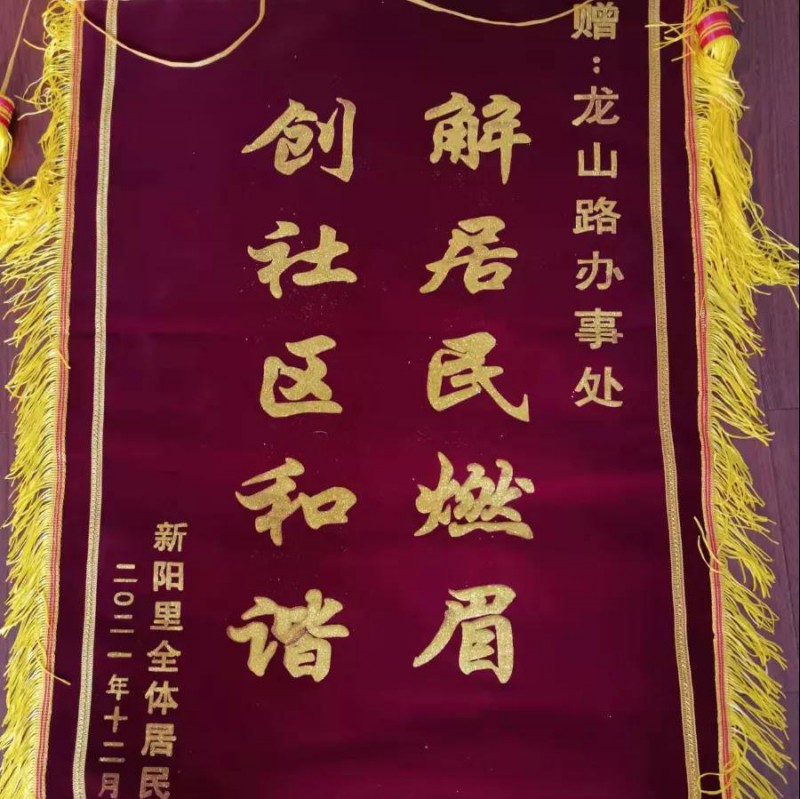 赠:龙山路办事处
解居民燃眉
创社区和谐
新阳里全体居民
二〇二一年十二月